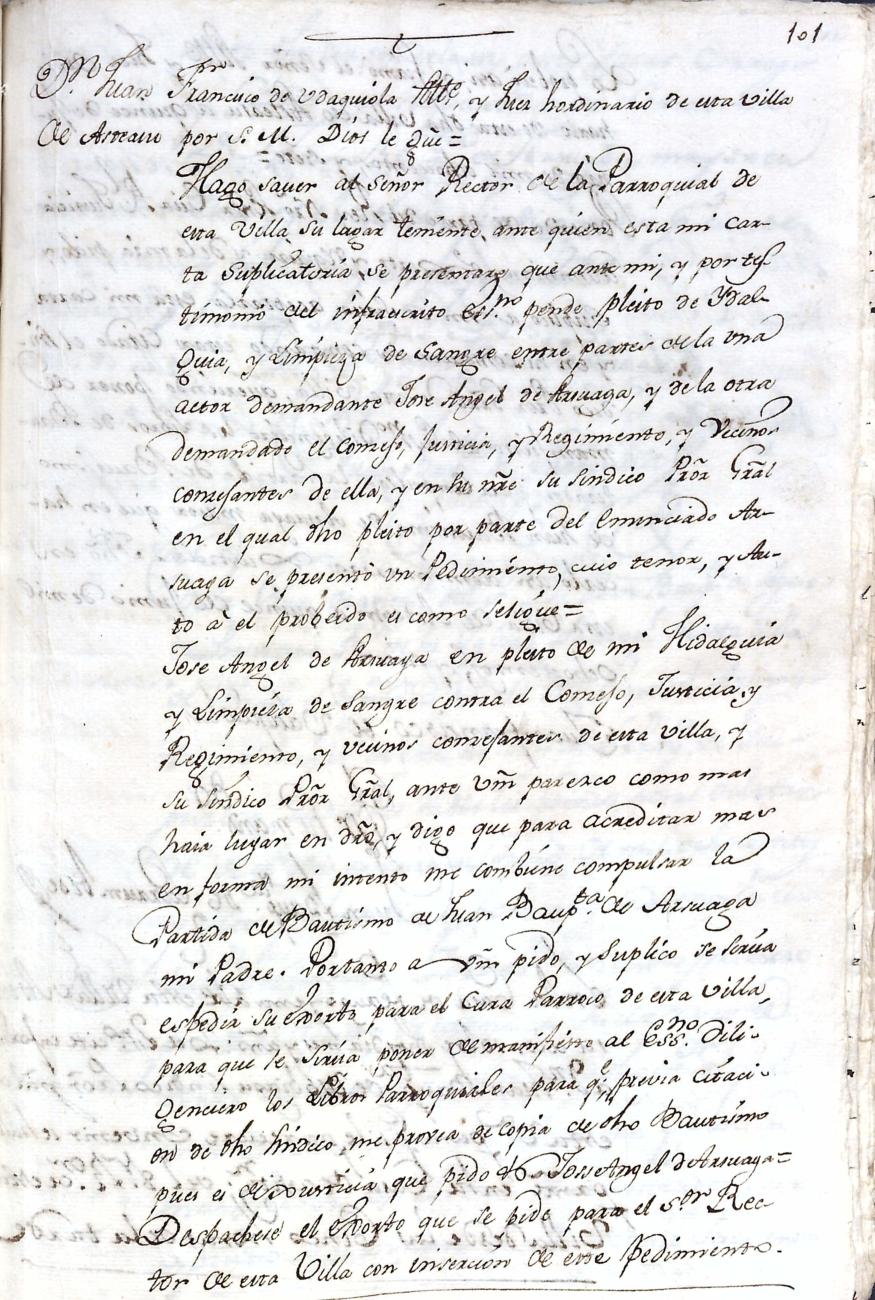 101
Dn Juan Franco de Vdaquiola Altte, y Juez hordinario de esta villa
de Asteasu por S. M. Dios le gue=
Hago saver al Señor Rector de la Parroquial de
esta Villa su lugar teniente, ante quien esta mi Car-
ta Suplicatoria, se presentare que ante mi, y por tes-
timonio del infraescrito Essno pende pleito de Ydal-
guia, y Limpieza de Sangre entre partes de la vna
actor demandante Jose Angel de Arsuaga, y de la otra
demandado el Consejo, Justicia, y Regimiento, y Vecinos
consejantes de ella, y en su nre su sindico Pror Gral
en el qual dho pleito por parte del enunciado Ar-
suaga se presentó vn Pedimiento, cuio tenor, y Au-
to á el proberdo es como sesigue=
Jose Angel de Arsuaga en pleito de mi Hidalguia
y Limpieza de Sangre contra el Consejo, Justicia, y
Regimiento, y vecinos consejantes de esta villa, y
su sindico Pror Gral, ante Vm parezco como mas
haia lugar en dro, y digo que para acreditar mas
en forma mi intento me combiene compulsar la
Partida de Bautismo de Juan Bapta de Arsuaga
mi Padre. Por tanto a Vm pido, y suplico se sirva
espedir su exorto para el Cura Parroco de esta villa,
para que se sirva poner de manifiesto al Essno Dili-
genciero los Libros Parroquiales para qe previa citaci-
on de dho sindico, me provea de copia de dho Bautismo
pues es de Justicia que pido &a Jose Angel de Arsuaga=
Despachese el exorto que se pide para el Sor Rec-
tor de esta Villa con insercion de este pedimiento.